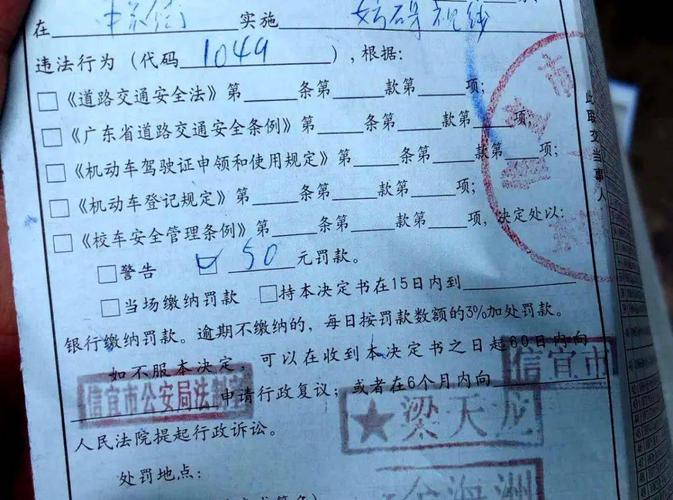 在 中兴街 实施 妨碍视线
违法行为（代码 1049 ），根据：
□《道路交通安全法》第 条第 款第 项；
□《广东省道路交通安全条例》第 条第 款第 项；
□《机动车驾驶证申领和使用规定》第 条第 款第 项；
□《机动车登记规定》第 条第 款第 项；
□《校车安全管理条例》第 条第 款第 项，决定处以：
□警告 ☑ 50 元罚款。
□当场缴纳罚款 □持本决定书在15日内到
银行缴纳罚款。逾期不缴纳的，每日按罚款数额的3%加处罚款。
如不服本决定，可以在收到本决定书之日起60日内向
信宜市公安局法制 申请行政复议；或者在6个月内向 信宜市
人民法院提起行政诉讼。
梁天龙
处罚地点：
此联交当事人